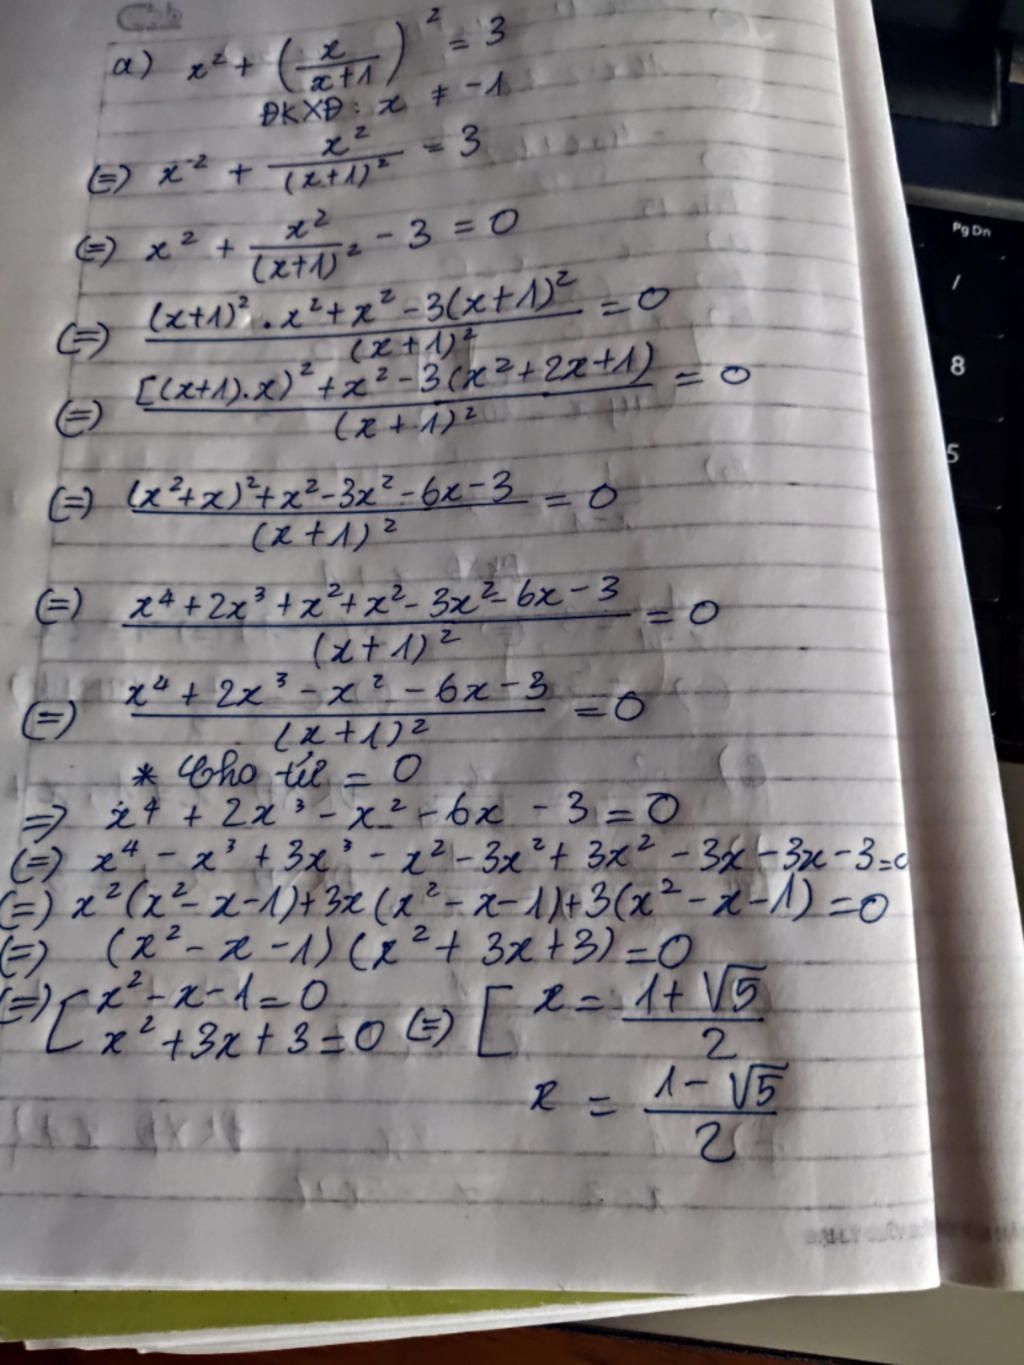 a) x² + (x/(x+1))² = 3
ĐKXĐ: x ≠ -1
(=) x² + x²/(x+1)² = 3
(=) x² + x²/(x+1)² - 3 = 0
(=) ((x+1)².x² + x² - 3(x+1)²)/(x+1)² = 0
(=) ([(x+1).x)² + x² - 3(x² + 2x + 1))/(x+1)² = 0
(=) ((x²+x)² + x² - 3x² - 6x - 3)/(x+1)² = 0
(=) (x⁴ + 2x³ + x² + x² - 3x² - 6x - 3)/(x+1)² = 0
(=) (x⁴ + 2x³ - x² - 6x - 3)/(x+1)² = 0
* Cho tử = 0
=> x⁴ + 2x³ - x² - 6x - 3 = 0
(=) x⁴ - x³ + 3x³ - x² - 3x² + 3x² - 3x - 3x - 3 = 0
(=) x²(x² - x - 1) + 3x(x² - x - 1) + 3(x² - x - 1) = 0
(=) (x² - x - 1)(x² + 3x + 3) = 0
(=) [ x² - x - 1 = 0
x² + 3x + 3 = 0 (=) [ x = (1 + √5)/2
x = (1 - √5)/2
Pg Dn
/
8
5